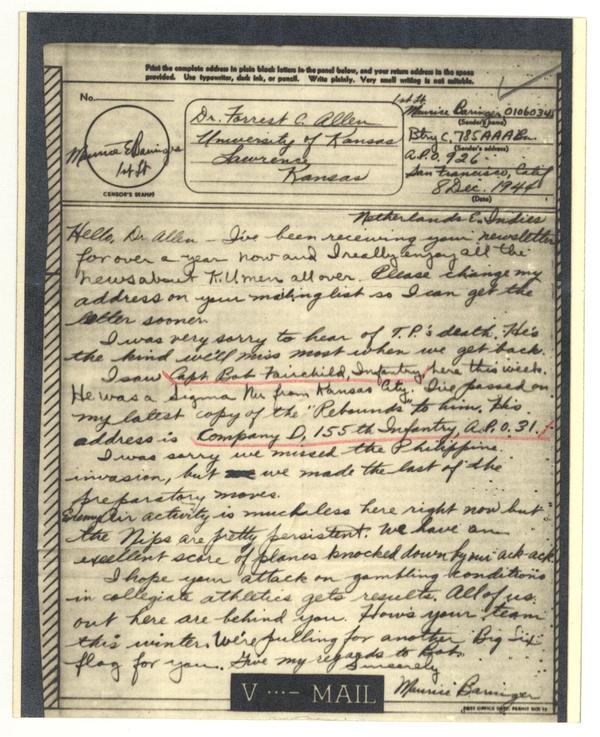 Print the complete address in plain block letters in the panel below, and your return address in the space
provided. Use typewriter, dark ink, or pencil. Write plainly. Very small writing is not suitable.
No.
Maurice E Baringer
1st Lt
CENSOR'S STAMP
Dr. Forrest C. Allen
University of Kansas
Lawrence,
Kansas
1st Lt.
Maurice Baringer 01060345
(Sender's name)
Btry C, 785 AAABn.
(Sender's address)
A.P.O. 926
San Francisco, Calif
8 Dec. 1944
(Date)
Netherlands E. Indies
Hello, Dr Allen — I've been receiving your newsletter
for over a year now and I really enjoy all the
news about K.U. men all over. Please change my
address on your mailing list so I can get the
letter sooner.
I was very sorry to hear of T.P.'s death. He's
the kind we'll miss most when we get back.
I saw Capt Bob Fairchild, Infantry, here this week.
He was a Sigma Nu from Kansas City. I've passed on
my latest copy of the "Rebounds" to him. His
address is Company D, 155th Infantry, A.P.O. 31.
I was sorry we missed the Philippine
invasion, but we made the last of the
preparatory moves.
Enemy air activity is much less here right now but
the Nips are pretty persistent. We have an
excellent score of planes knocked down by our ack-ack.
I hope your attack on gambling conditions
in collegiate athletics gets results. All of us
out here are behind you. How's your team
this winter. We're pulling for another Big Six
flag for you. Give my regards to Bob.
Sincerely
Maurice Baringer
V ···— MAIL